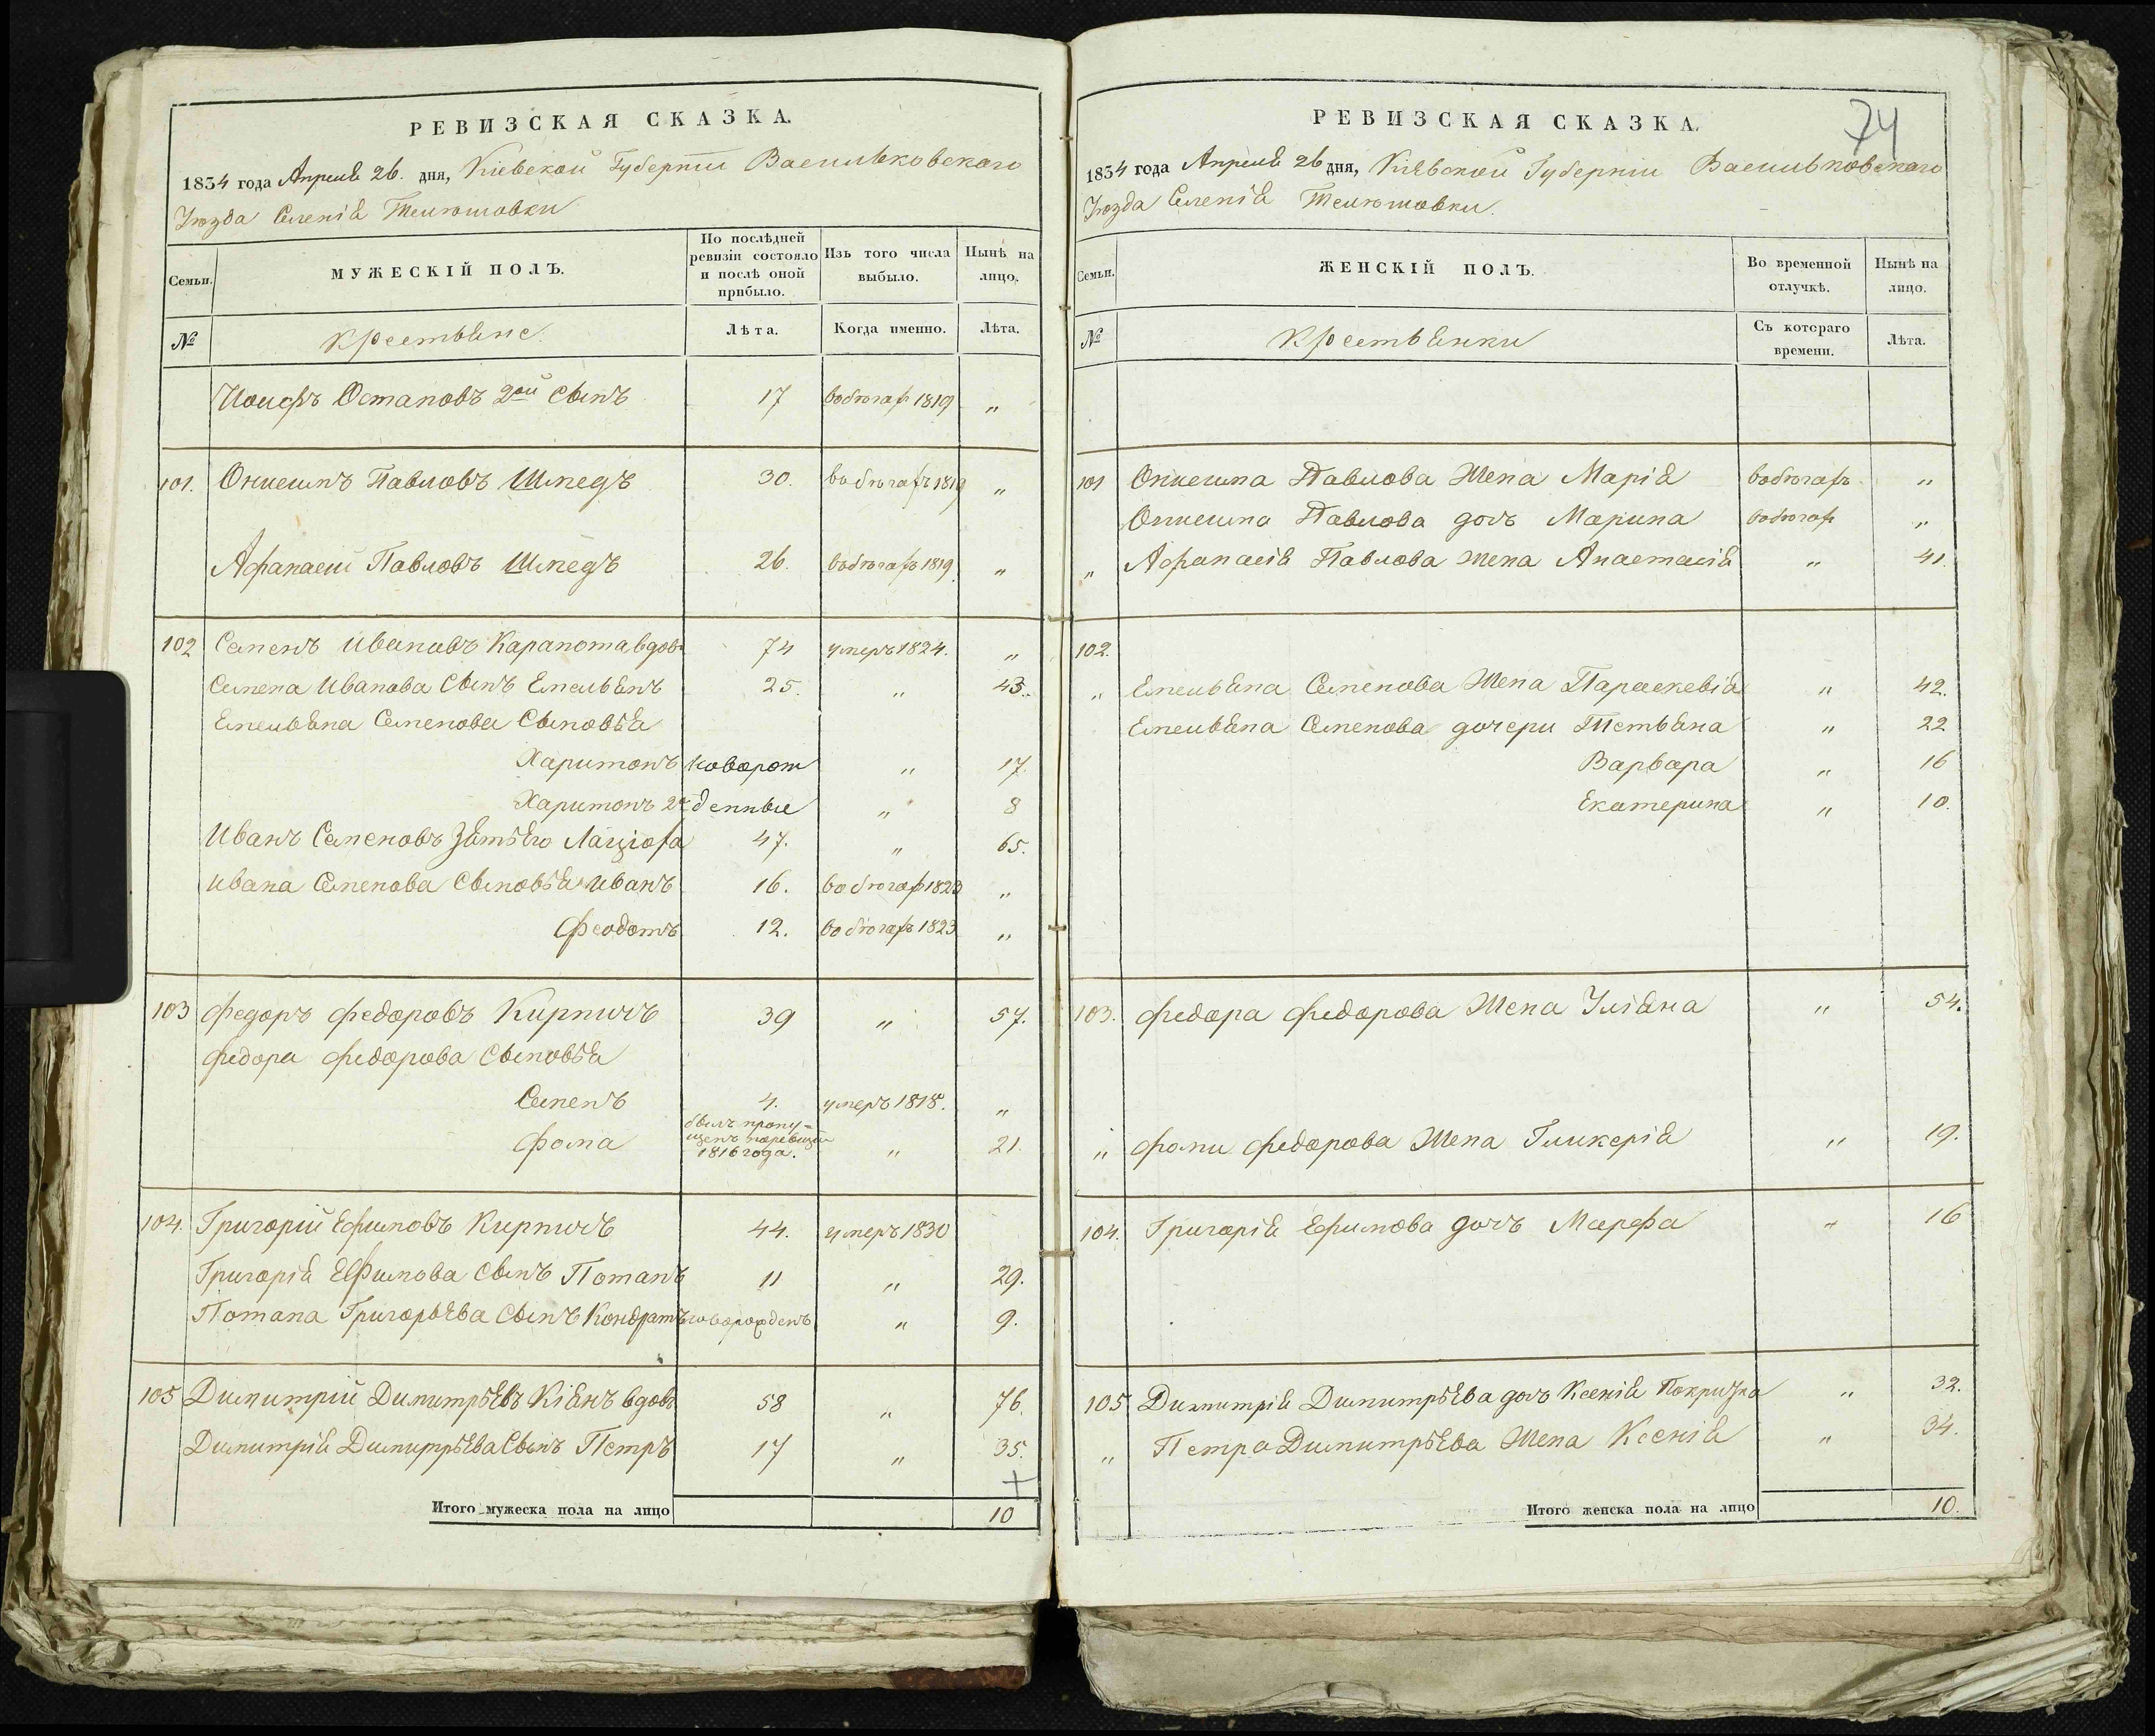 РЕВИЗСКАЯ СКАЗКА.
1834 года Апреля 26. дня, Кіевской Губерніи Васильковскаго
Уѣзда Селенія Телюшовки
Семьи.
МУЖЕСКІЙ ПОЛЪ.
По послѣдней ревизіи состояло и послѣ оной прибыло.
Изъ того числа выбыло.
Нынѣ на лицо.
№
Крестьяне
Лѣта.
Когда именно.
Лѣта.
Иосифъ Остаповъ 2ой сынъ 17 вобѣгах 1819 "
101. Онисимъ Павловъ Шпедъ 30. вобѣгахъ 1819 "
Афанасій Павловъ Шпедъ 26. вобѣгахъ 1819 "
102 Семенъ Ивановъ Карапота вдовъ 74 умеръ 1824. "
Семена Иванова сынъ Емельянъ 25. " 43.
Емельяна Семенова сыновья
Харитонъ новорож " 17.
Харитонъ 2й денные " 8
Иванъ Семеновъ Зять Его 47. " 65.
Ивана Семенова сыновья Иванъ 16. вобѣгах 1823 "
Феодотъ 12. вобѣгахъ 1823 "
103 Федоръ Федоровъ Кирпичъ 39 " 57.
Федора Федорова сыновья
Семенъ 4. умеръ 1818. "
Фома былъ пропу=щенъ поревизіи 1816 года. " 21.
104. Григорій Ефимовъ Кирпичъ 44. умеръ 1830
Григорія Ефимова сынъ Потапъ 11 " 29.
Потапа Григорьева сынъ Кондратъ новорожденъ " 9.
105 Димитрій Димитрьевъ Кіянъ вдовъ 58 " 76.
Димитрія Димитрьева сынъ Петръ 17 " 35.
+
Итого мужеска пола на лицо 10
74
РЕВИЗСКАЯ СКАЗКА.
1834 года Апреля 26 дня, Кіевской Губерніи Васильковскаго
Уѣзда Селенія Телюшовки.
Семьи.
ЖЕНСКІЙ ПОЛЪ.
Во временной отлучкѣ.
Нынѣ на лицо.
№
Крестьянки
Съ котораго времени.
Лѣта.
101 Онисима Павлова жена Марія вобѣгахъ "
Онисима Павлова дочь Марина вобѣгах "
" Афанасія Павлова жена Анастасія " 41.
102.
" Емельяна Семенова жена Параскевія " 42.
Емельяна Семенова дочери Тетьяна " 22
Варвара " 16
Екатерина " 10.
103. Федора Федорова жена Уліяна " 54.
" Фомы Федорова жена Гликерія " 19.
104. Григорія Ефимова дочь Марфа " 16
105. Димитрія Димитрьева дочь Ксенія Покритка " 32.
" Петра Димитрьева жена Ксенія " 34.
Итого женска пола на лицо 10.